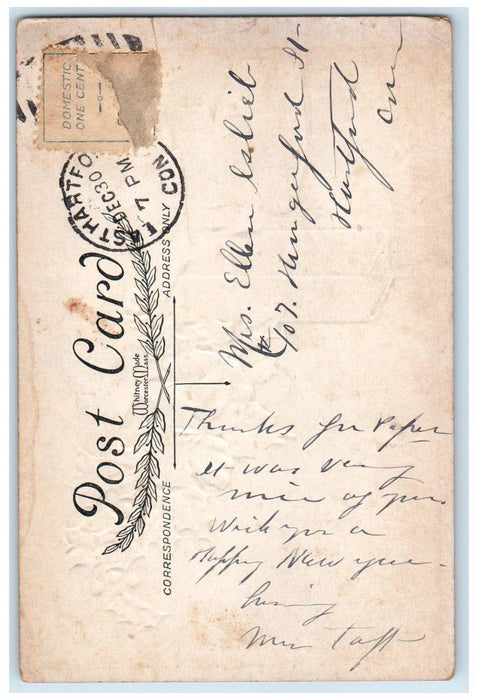 DOMESTIC
ONE CENT
EAST HARTFORD
DEC 30
7 PM
CONN
Post Card
Whitney Made
Worcester, Mass.
CORRESPONDENCE
ADDRESS ONLY
Thanks for Paper
it was very
nice of you
Wish you a
Happy New year
Taft
Mrs. Ellen Leslie
# 107. Hungerford St
Hartford
Conn